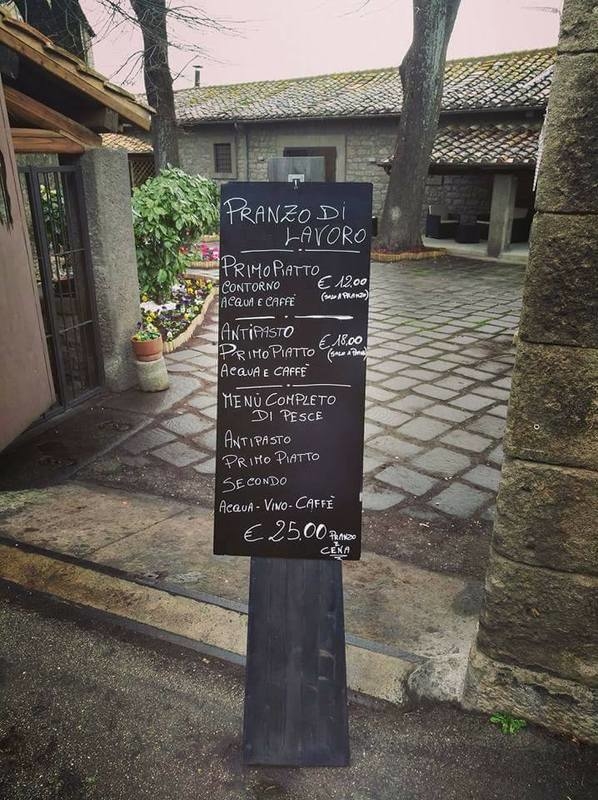 PRANZO DI
LAVORO
PRIMO PIATTO
CONTORNO € 12.00
ACQUA E CAFFÈ (SOLO A PRANZO)
ANTIPASTO
PRIMO PIATTO € 18.00
ACQUA E CAFFÈ (SOLO A
MENÙ COMPLETO
DI PESCE
ANTIPASTO
PRIMO PIATTO
SECONDO
ACQUA - VINO - CAFFÈ
€ 25.00 PRANZO
E
CENA